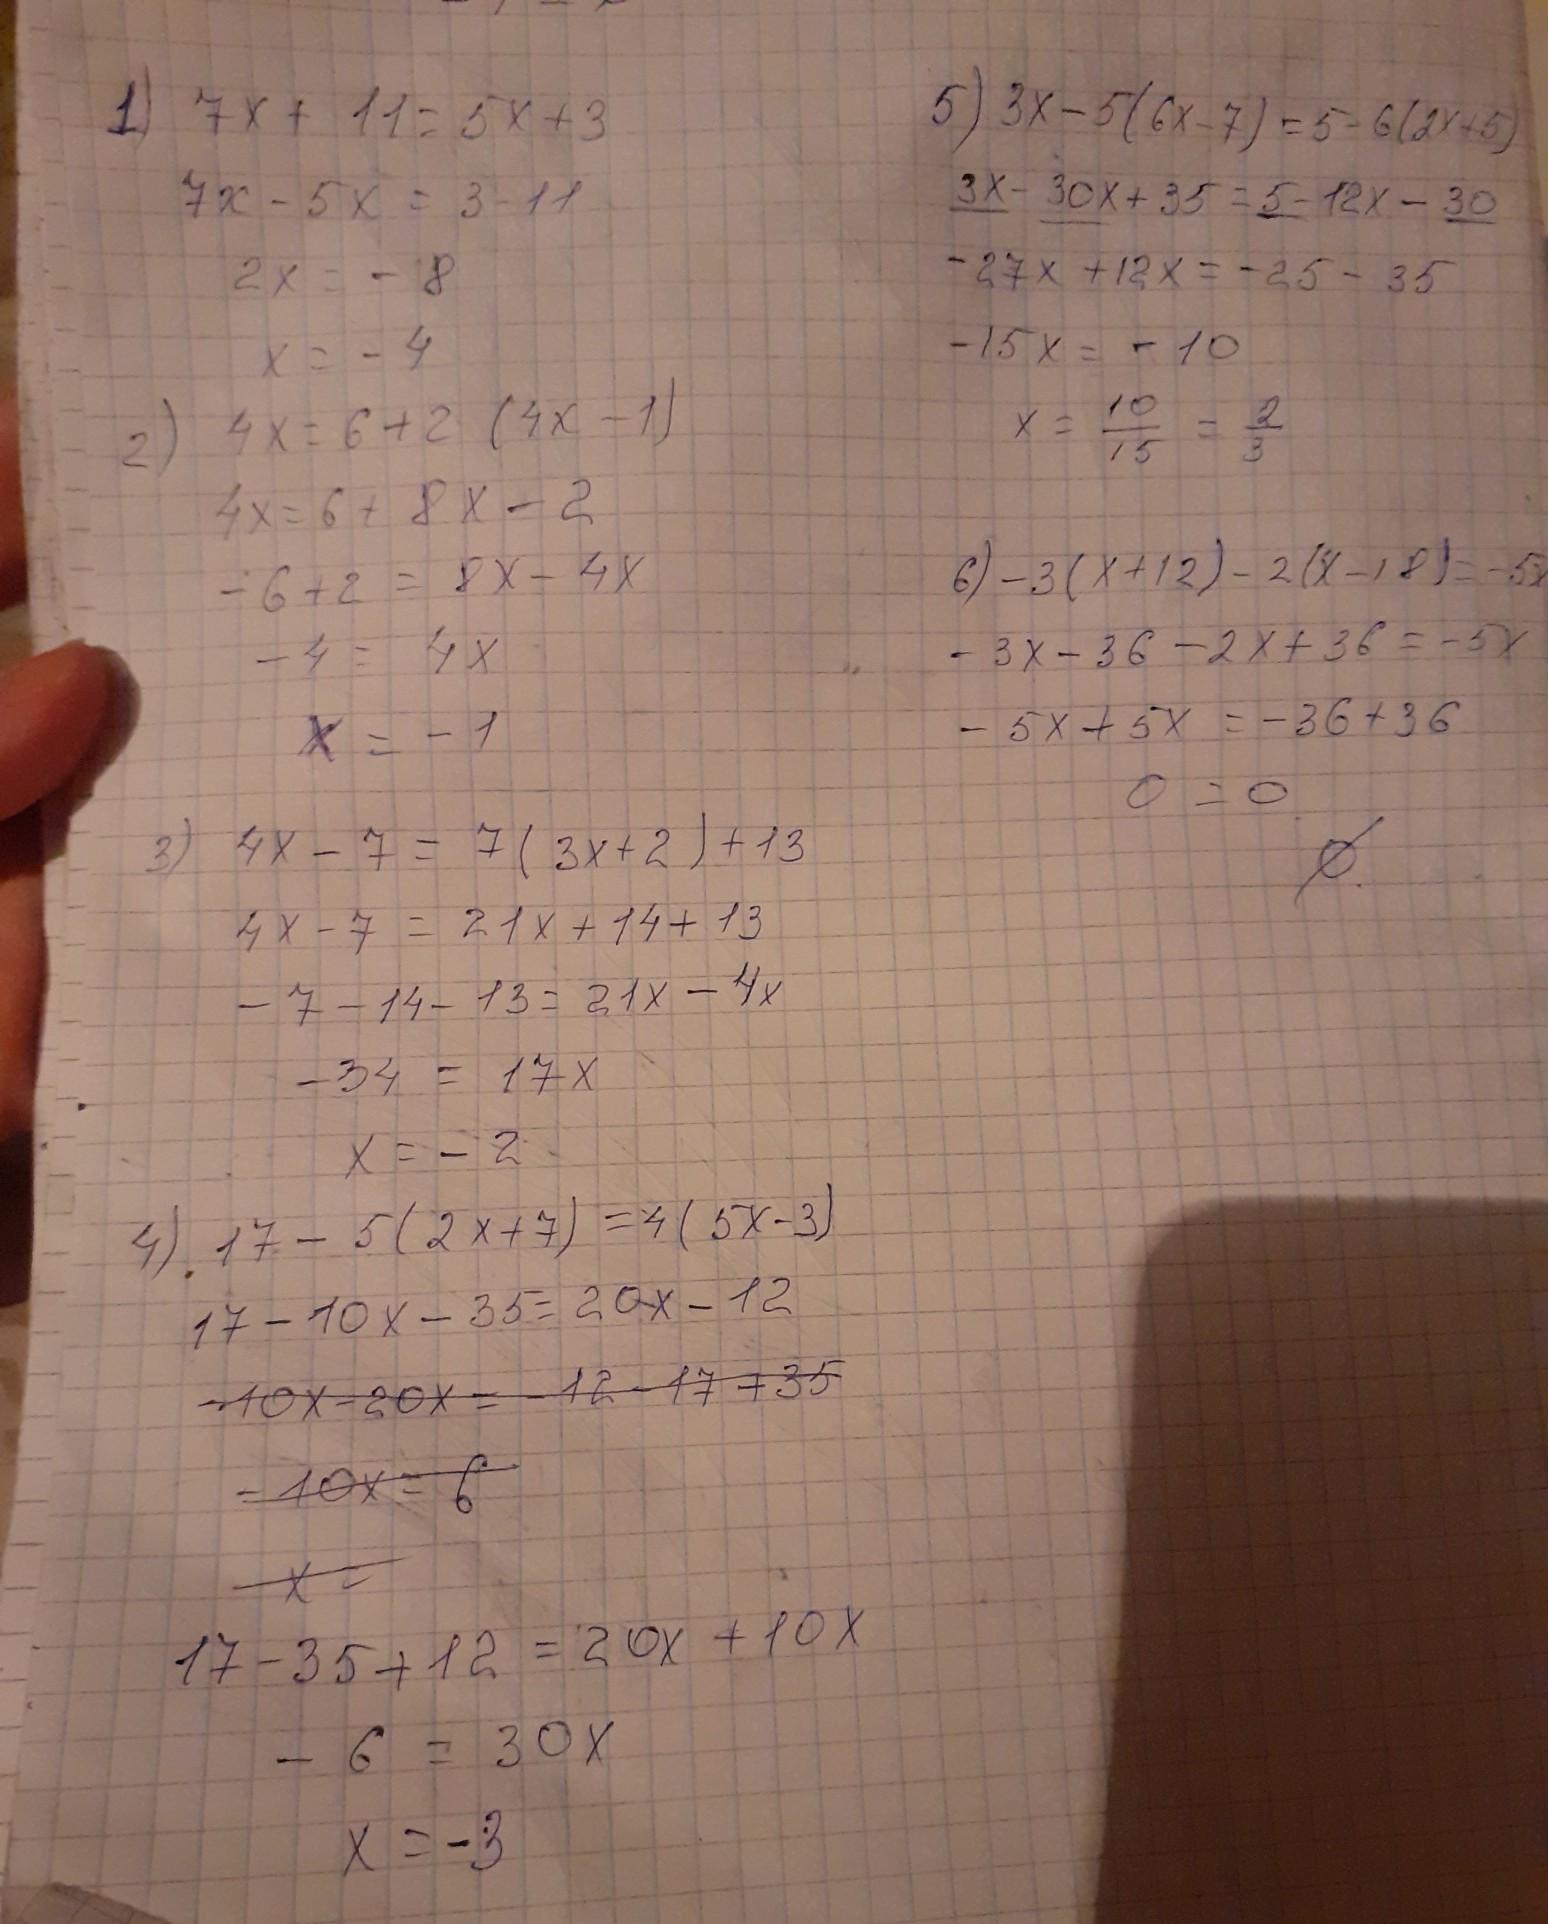 1) 7x + 11 = 5x + 3
7x - 5x = 3 - 11
2x = - 8
x = - 4
2) 4x = 6 + 2 (4x - 1)
4x = 6 + 8x - 2
- 6 + 2 = 8x - 4x
- 4 = 4x
x = - 1
3) 4x - 7 = 7 (3x + 2) + 13
4x - 7 = 21x + 14 + 13
- 7 - 14 - 13 = 21x - 4x
- 34 = 17x
x = - 2
4) 17 - 5(2x + 7) = 4(5x - 3)
17 - 10x - 35 = 20x - 12
-10x - 20x = - 12 - 17 + 35
- 10x = 6
x =
17 - 35 + 12 = 20x + 10x
- 6 = 30x
x = - 3
5) 3x - 5(6x - 7) = 5 - 6(2x + 5)
3x - 30x + 35 = 5 - 12x - 30
- 27x + 12x = - 25 - 35
- 15x = - 10
x = 10/15 = 2/3
6) - 3(x + 12) - 2(x - 18) = - 5x
- 3x - 36 - 2x + 36 = - 5x
- 5x + 5x = - 36 + 36
0 = 0
∅.